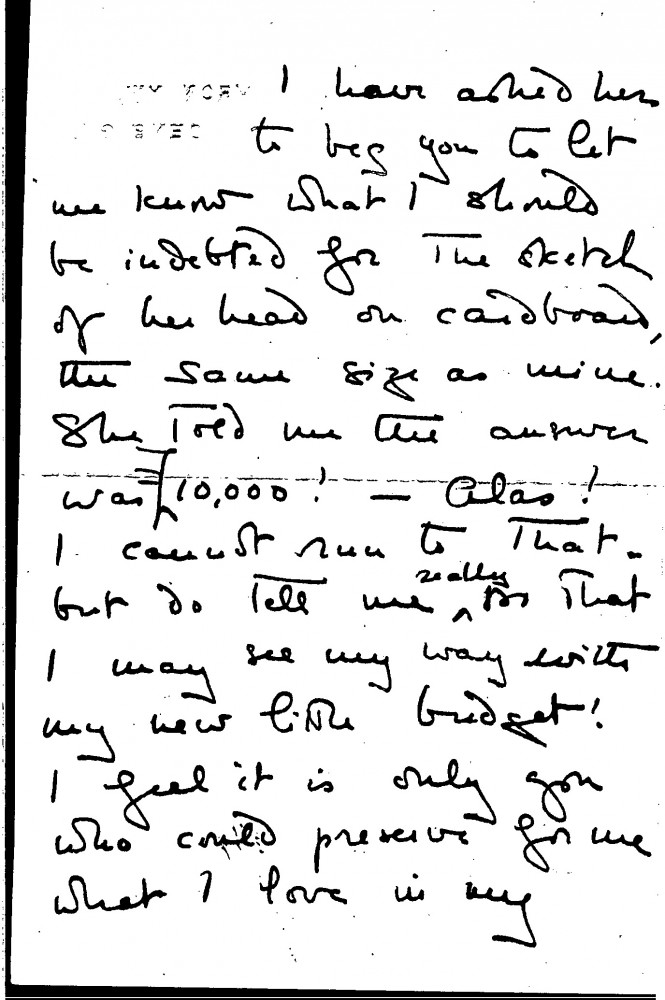 I have asked her
to beg you to let
me know what I should
be indebted for the sketch
of her head on cardboard,
the same size as mine.
She told me the answer
was £10,000! — Alas!
I cannot run to that.
but do tell me really so that
I may see my way with
my new little budget!
I feel it is only you
who could preserve for me
what I love in my